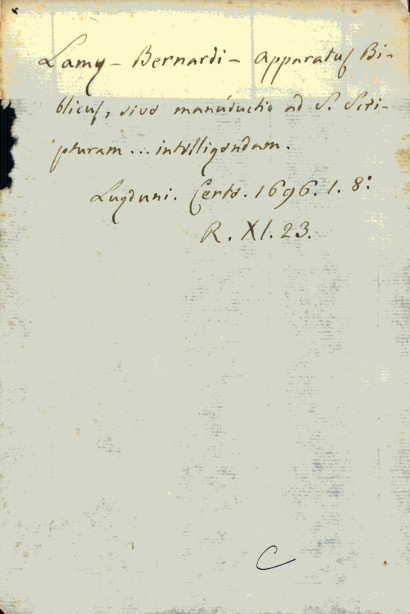 Lamy - Bernardi - Apparatus Bi-
blicus, sive manúductio ad S. Scri-
pturam ... intelligendam.
Lugduni. Certe. 1696. 1. 8:
R. XI. 23.
C